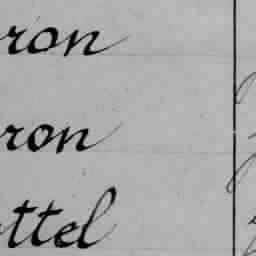 ron
ron
ttel